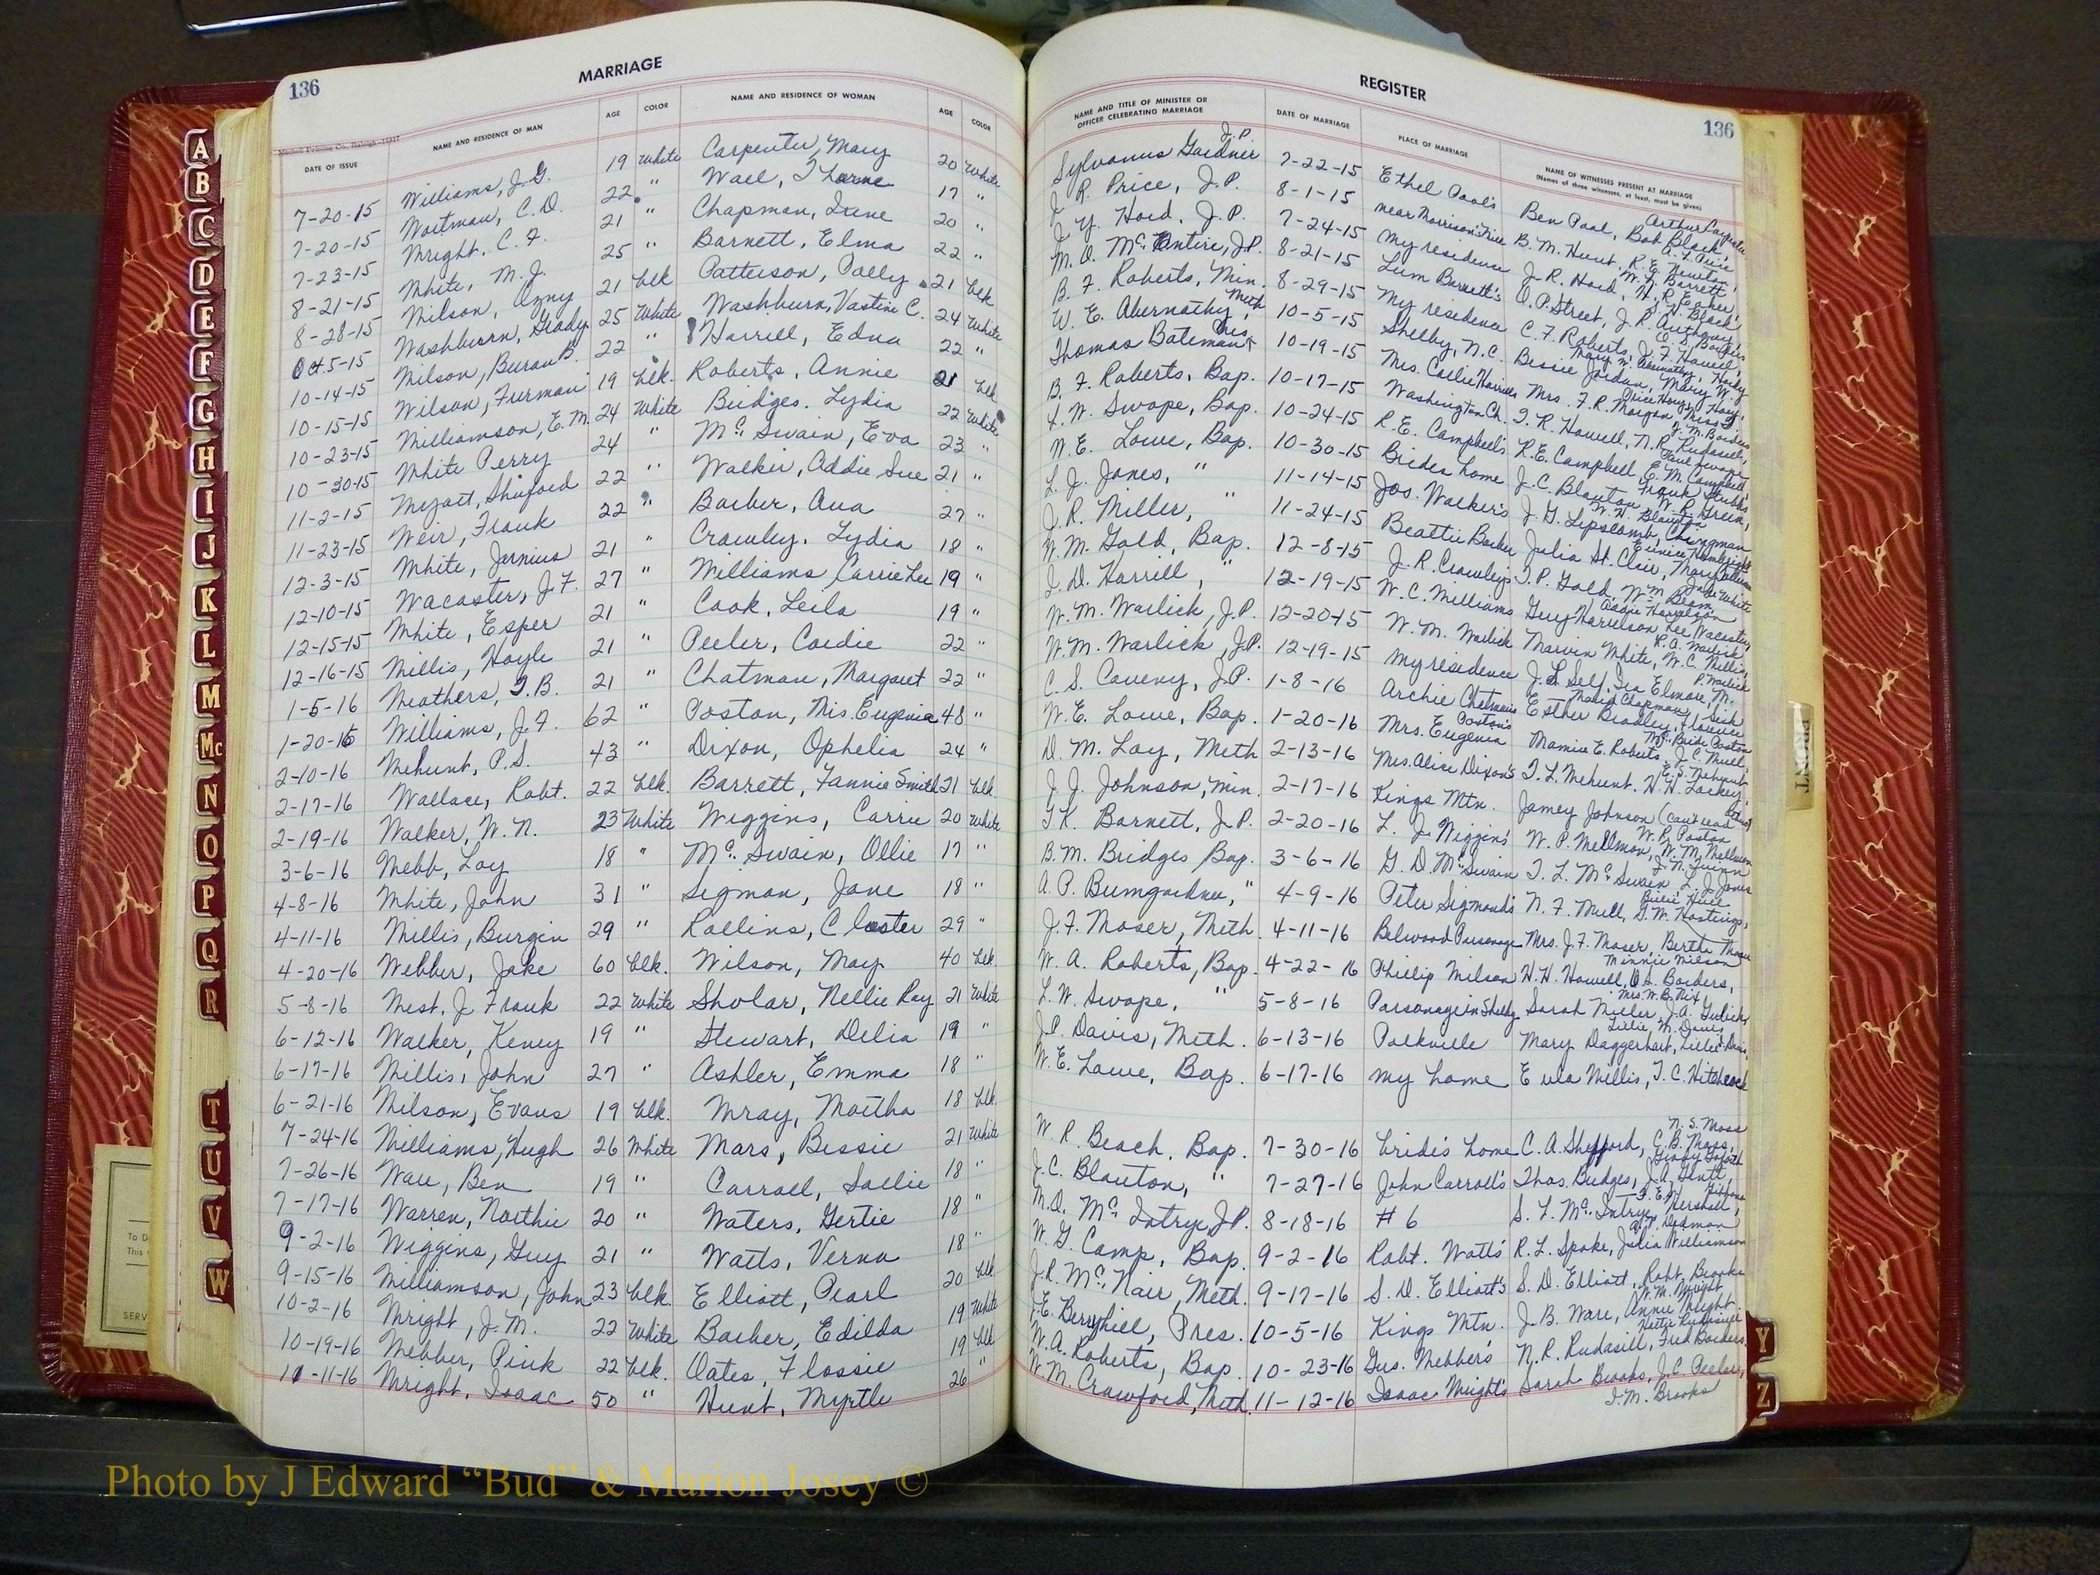 136
MARRIAGE
DATE OF ISSUE NAME AND RESIDENCE OF MAN AGE COLOR NAME AND RESIDENCE OF WOMAN AGE COLOR
7-20-15 Williams, J. G. 19 White Carpenter, Mary 20 White
7-20-15 Waitman, C. D. 22 " 17 "
7-23-15 Wright, C. F. 21 " Chapman, June 20 "
8-21-15 White, M. J. 25 " Barnett, Elma 22 "
8-28-15 Wilson, Ozny 21 blk Patterson, Polly 21 blk
Oct 5-15 Washburn, Grady 25 White Washburn, Vastine C. 24 White
10-14-15 Wilson, Buran B. 22 " Harrell, Edna 22 "
10-15-15 Wilson, Furman 19 blk. Roberts, Annie 21 blk
10-23-15 Williamson, E. M. 24 White Bridges, Lydia 22 White
10-30-15 White Perry 24 " McSwain, Eva 23 "
11-2-15 Wyatt, Shuford 22 " Walker, Addie Sue 21 "
11-23-15 Weir, Frank 22 " Barber, Ava 27 "
12-3-15 White, Junius 21 " Crawley, Lydia 18 "
12-10-15 Wacaster, J. F. 27 " Williams, Carrie Lee 19 "
12-15-15 White, Esper 21 " Cook, Leila 19 "
12-16-15 Willis, Hoyle 21 " Peeler, Cordie 22 "
1-5-16 Weathers, T. B. 21 " Chatman, Margaret 22 "
1-20-16 Williams, J. F. 62 " Poston, Mrs. Eugenia 48 "
2-10-16 Wehunt, P. S. 43 " Dixon, Ophelia 24 "
2-17-16 Wallace, Robt. 22 blk. Barrett, Fannie Smith 21 blk
2-19-16 Walker, W. N. 23 White Wiggins, Carrie 20 White
3-6-16 Webb, Loy 18 " McSwain, Ollie 17 "
4-8-16 White, John 31 " Sigmon, Jane 18 "
4-11-16 Willis, Burgin 29 " Rollins, Closter 29 "
4-20-16 Webber, Jake 60 blk. Wilson, May 40 blk.
5-8-16 West, J. Frank 22 White Sholar, Nellie Ray 21 White
6-12-16 Walker, Keney 19 " Stewart, Delia 19 "
6-17-16 Willis, John 27 " Ashler, Emma 18 "
6-21-16 Wilson, Evans 19 blk. Wray, Martha 18 blk.
7-24-16 Williams, Hugh 26 White Mars, Bessie 21 White
7-26-16 Ware, Ben 19 " Carroll, Sallie 18 "
7-17-16 Warren, Northie 20 " Waters, Gertie 18 "
9-2-16 Wiggins, Guy 21 " Watts, Verna 18 "
9-15-16 Williamson, John 23 blk. Elliott, Pearl 20 blk
10-2-16 Wright, J. M. 22 White Barber, Edilda 19 White
10-19-16 Webber, Pink 22 blk. Oates, Flossie 19 blk
11-11-16 Wright, Isaac 50 " Hunt, Myrtle 26 "
REGISTER
136
NAME AND TITLE OF MINISTER OR OFFICER CELEBRATING MARRIAGE DATE OF MARRIAGE PLACE OF MARRIAGE NAME OF WITNESSES PRESENT AT MARRIAGE
(Names of three witnesses, at least, must be given)
Sylvanus Gardner J.P. 7-22-15 Ethel Pool's Ben Pool, Bob Black, Arthur Carpenter
J. R. Price, J. P. 8-1-15 near B. M. Hunt, R. E. Newton, A. L. Price
J. Y. Hord, J. P. 7-24-15 my residence J. R. Hord, W. F. Barrett,
M. O. McEntire, J.P. 8-21-15 Lum Barnett's O. P. Street, J. R.
B. F. Roberts, Min. 8-29-15 my residence C. F. Roberts, J. F. Howell,
W. E. Abernathy, Meth 10-5-15 Shelby, N.C. Bessie Jordan, Mary W. Abernathy,
Thomas Bateman Pres. 10-19-15 Mrs. Callie Harrills Mrs. F. R. Morgan
B. F. Roberts, Bap. 10-17-15 Washington Ch. T. R. Howell, N. R. Rudasill,
L. W. Swope, Bap. 10-24-15 R. E. Campbell's R. E. Campbell, E. M. Campbell,
W. E. Lowe, Bap. 10-30-15 Brides home J. C. Blanton, W. R. Green,
L. J. Jones, " 11-14-15 Jos. Walker's J. G. Lipscomb,
J. R. Miller, " 11-24-15 Beattie Barber Julia St. Clair,
W. M. Gold, Bap. 12-8-15 J. R. Crawley's T. P. Gold, Wm Beam
J. D. Harrell, " 12-19-15 W. C. Williams Guy Harrelson, Lee Wacaster,
W. M. Warlick, J.P. 12-20-15 W. M. Warlick Marvin White, W. C. Willis,
W. M. Warlick, J.P. 12-19-15 my residence J. L. Self, Ira Elmore,
C. S. Caveny, J.P. 1-8-16 Archie Chatmans Esther Bradley, Florence
W. E. Lowe, Bap. 1-20-16 Mrs. Eugenia Poston's Mamie E. Roberts, J. C. Mull,
D. M. Loy, Meth 2-13-16 Mrs. Alice Dixon's T. L. Wehunt, H. H. Lackey,
J. J. Johnson, Min. 2-17-16 Kings Mtn. Jamey Johnson (cant read
G. K. Barnett, J. P. 2-20-16 L. J. Wiggin's W. P. Wellmon, W. M. Wellmon
B. M. Bridges, Bap. 3-6-16 G. D. McSwain T. L. McSwain, L. J. Jones
A. P. Bumgardner, " 4-9-16 Peter Sigmond's N. F. Mull, G. W. Hastings,
J. F. Moser, Meth 4-11-16 Belwood Parsonage Mrs. J. F. Moser, Bertha Moser
W. A. Roberts, Bap. 4-22-16 Phillip Wilson H. H. Howell, O. S. Borders, Minnie Wilson
L. W. Swope, " 5-8-16 Parsonage in Shelby Sarah Miller, J. A. Gulick, Mrs. W. B. Nix,
J. P. Davis, Meth. 6-13-16 Polkville Mary Daggerhart, Lillie Davis, Lillie M. Davis
W. E. Lowe, Bap. 6-17-16 my home Eula Willis, T. C. Hitchcock
W. R. Beach, Bap. 7-30-16 bride's home C. A. Shefford, C. B. Moss, N. S. Moss
J. C. Blanton, " 7-27-16 John Carroll's Thos. Bridges, J. A. Gentt,
M. O. McIntrye J.P. 8-18-16 # 6 S. L. McIntrye,
W. G. Camp, Bap. 9-2-16 Robt. Watts' R. L. Spake, Julia Williamson
J. R. McNair, Meth. 9-17-16 S. D. Elliott's S. D. Elliott, Robt. Brooks
J. E. Berryhill, Pres. 10-5-16 Kings Mtn. J. B. Ware, Annie Wright, W. M. Wright
W. A. Roberts, Bap. 10-23-16 Gus. Webber's N. R. Rudasill, Fred Borders, Hettie Rudasill
W. M. Crawford, Meth. 11-12-16 Isaac Wright's Sarah Brooks, J. C. Peeler,
I. M. Brooks
A
B
C
D
E
F
G
H
I
J
K
L
M
Mc
N
O
P
Q
R
T
U
V
W
Y
Z
FRONT
Photo by J Edward “Bud” & Marion Josey ©